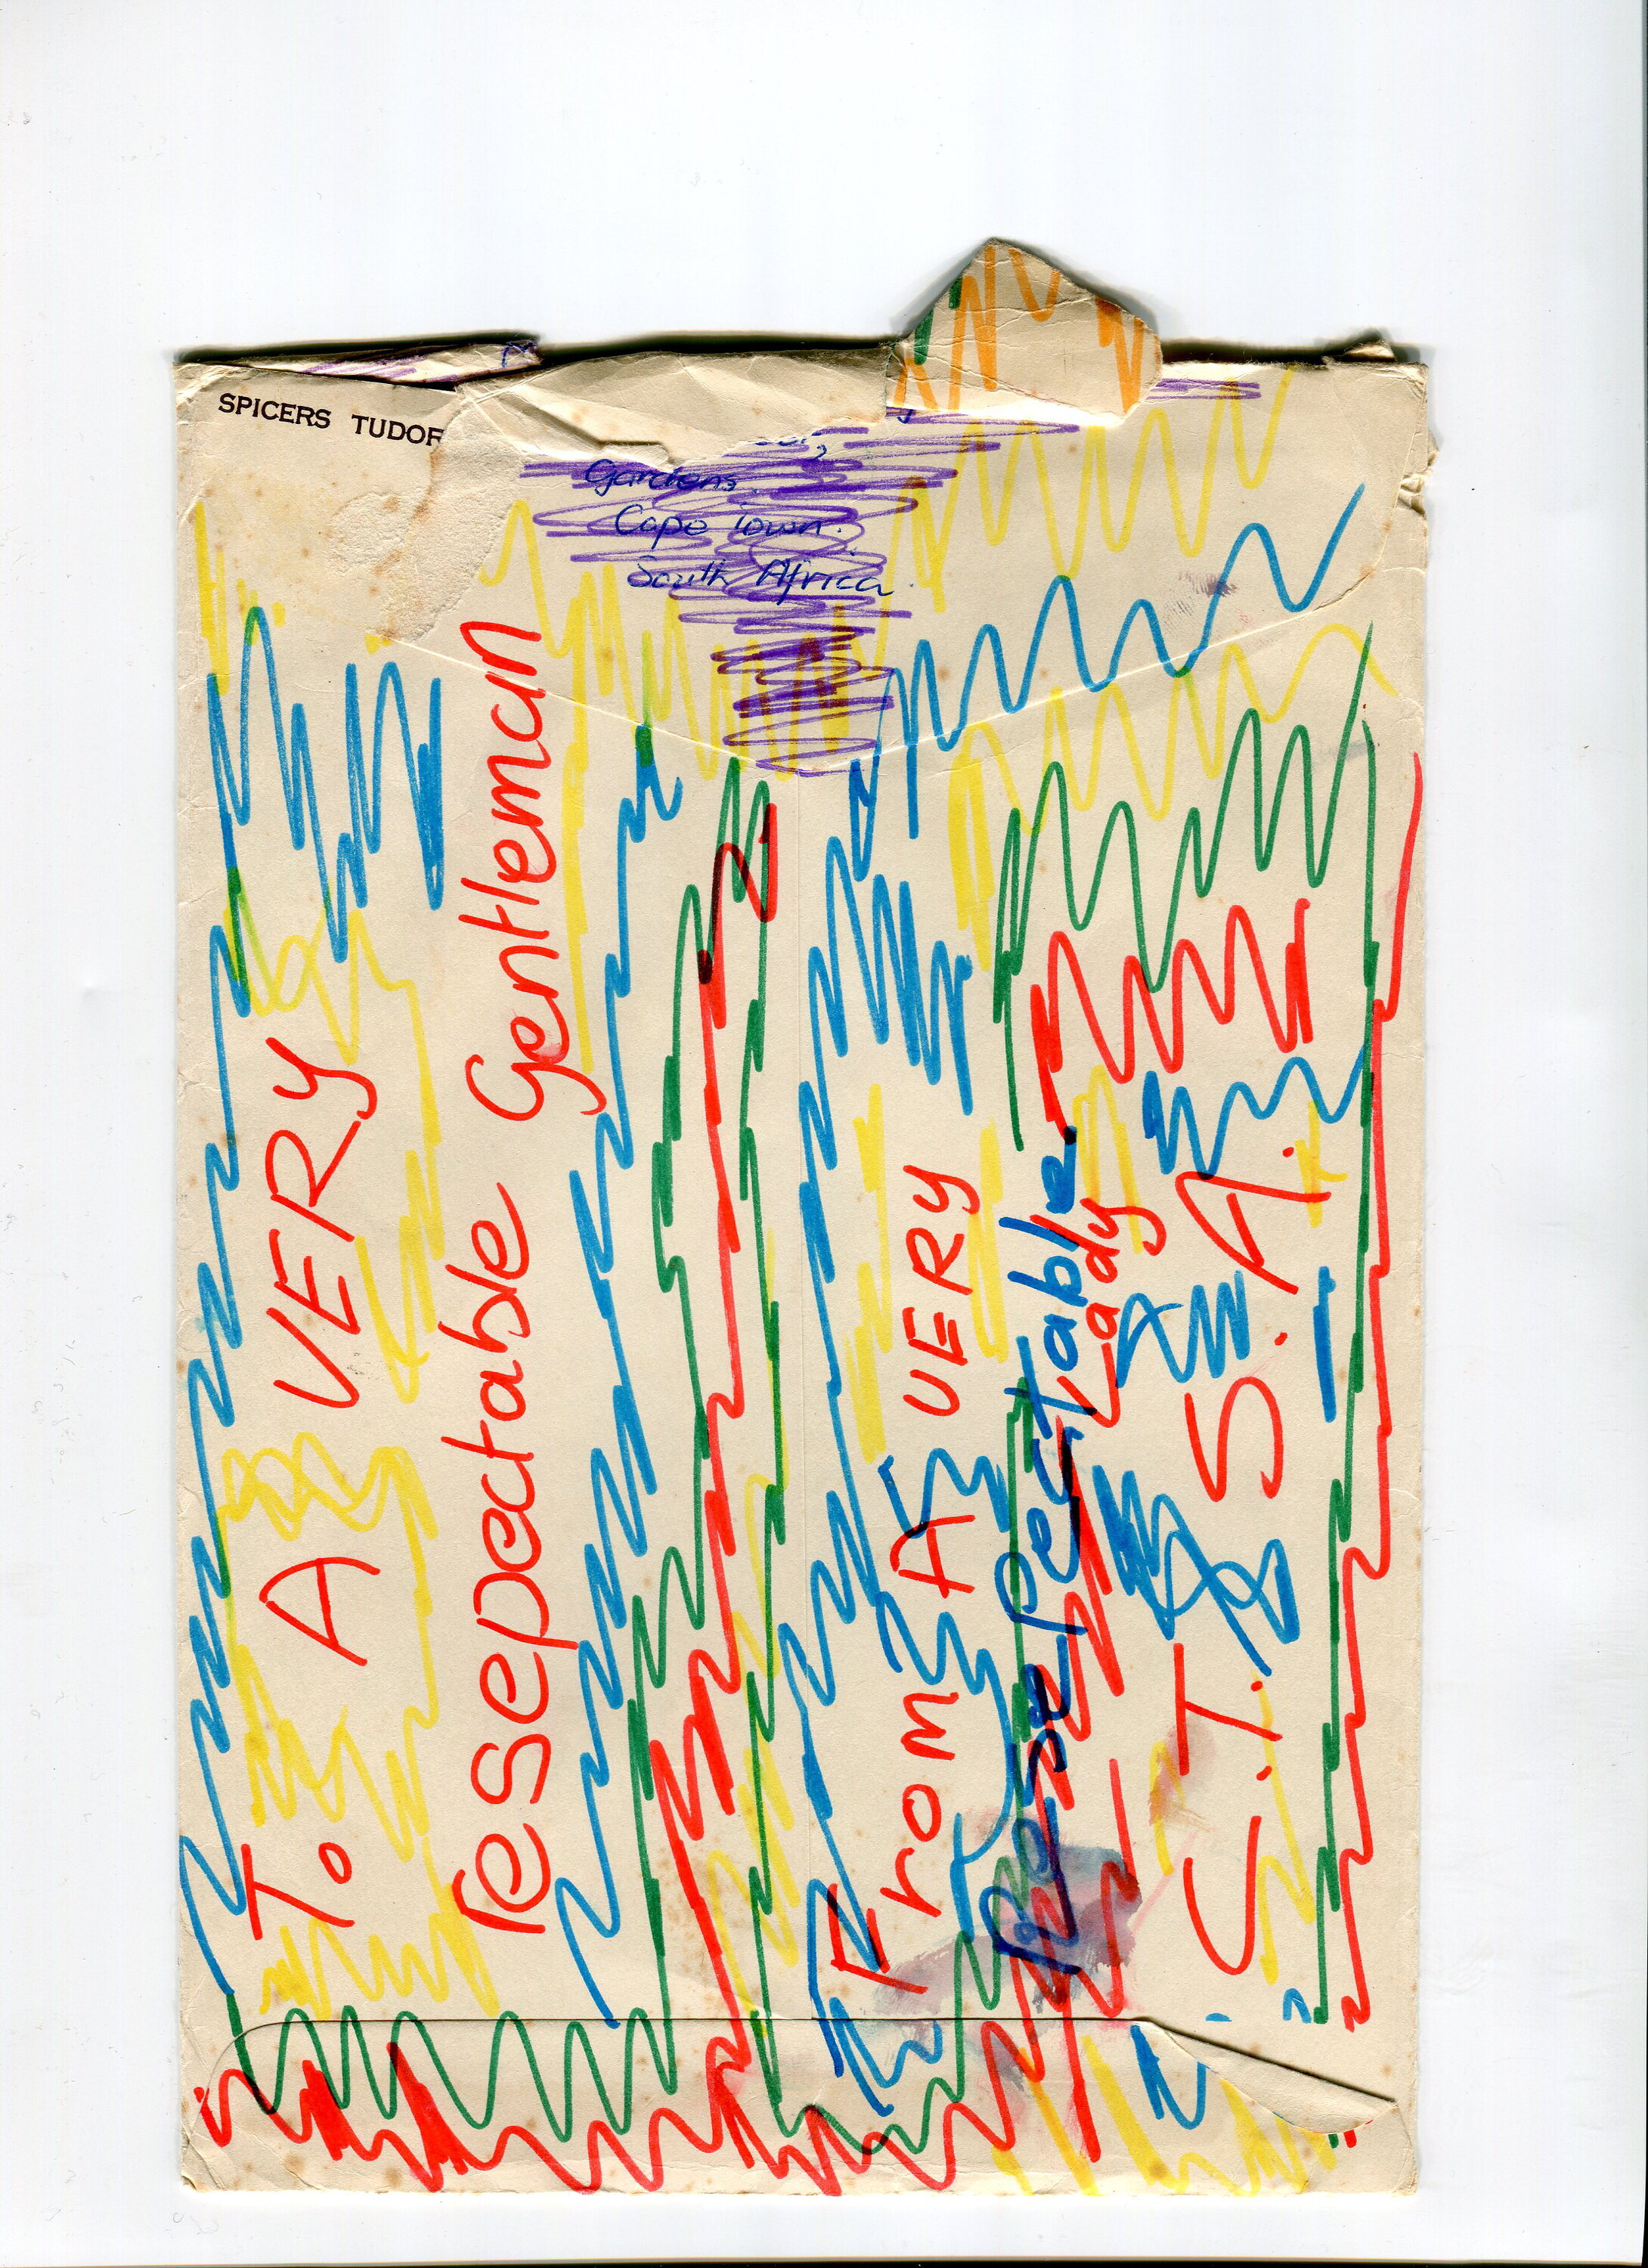 SPICERS TUDOR
Gardens
Cape Town.
South Africa.
To A VERY
resepectable Gentleman
From A VERY
Resepectable
Lady
S.T. S.A.